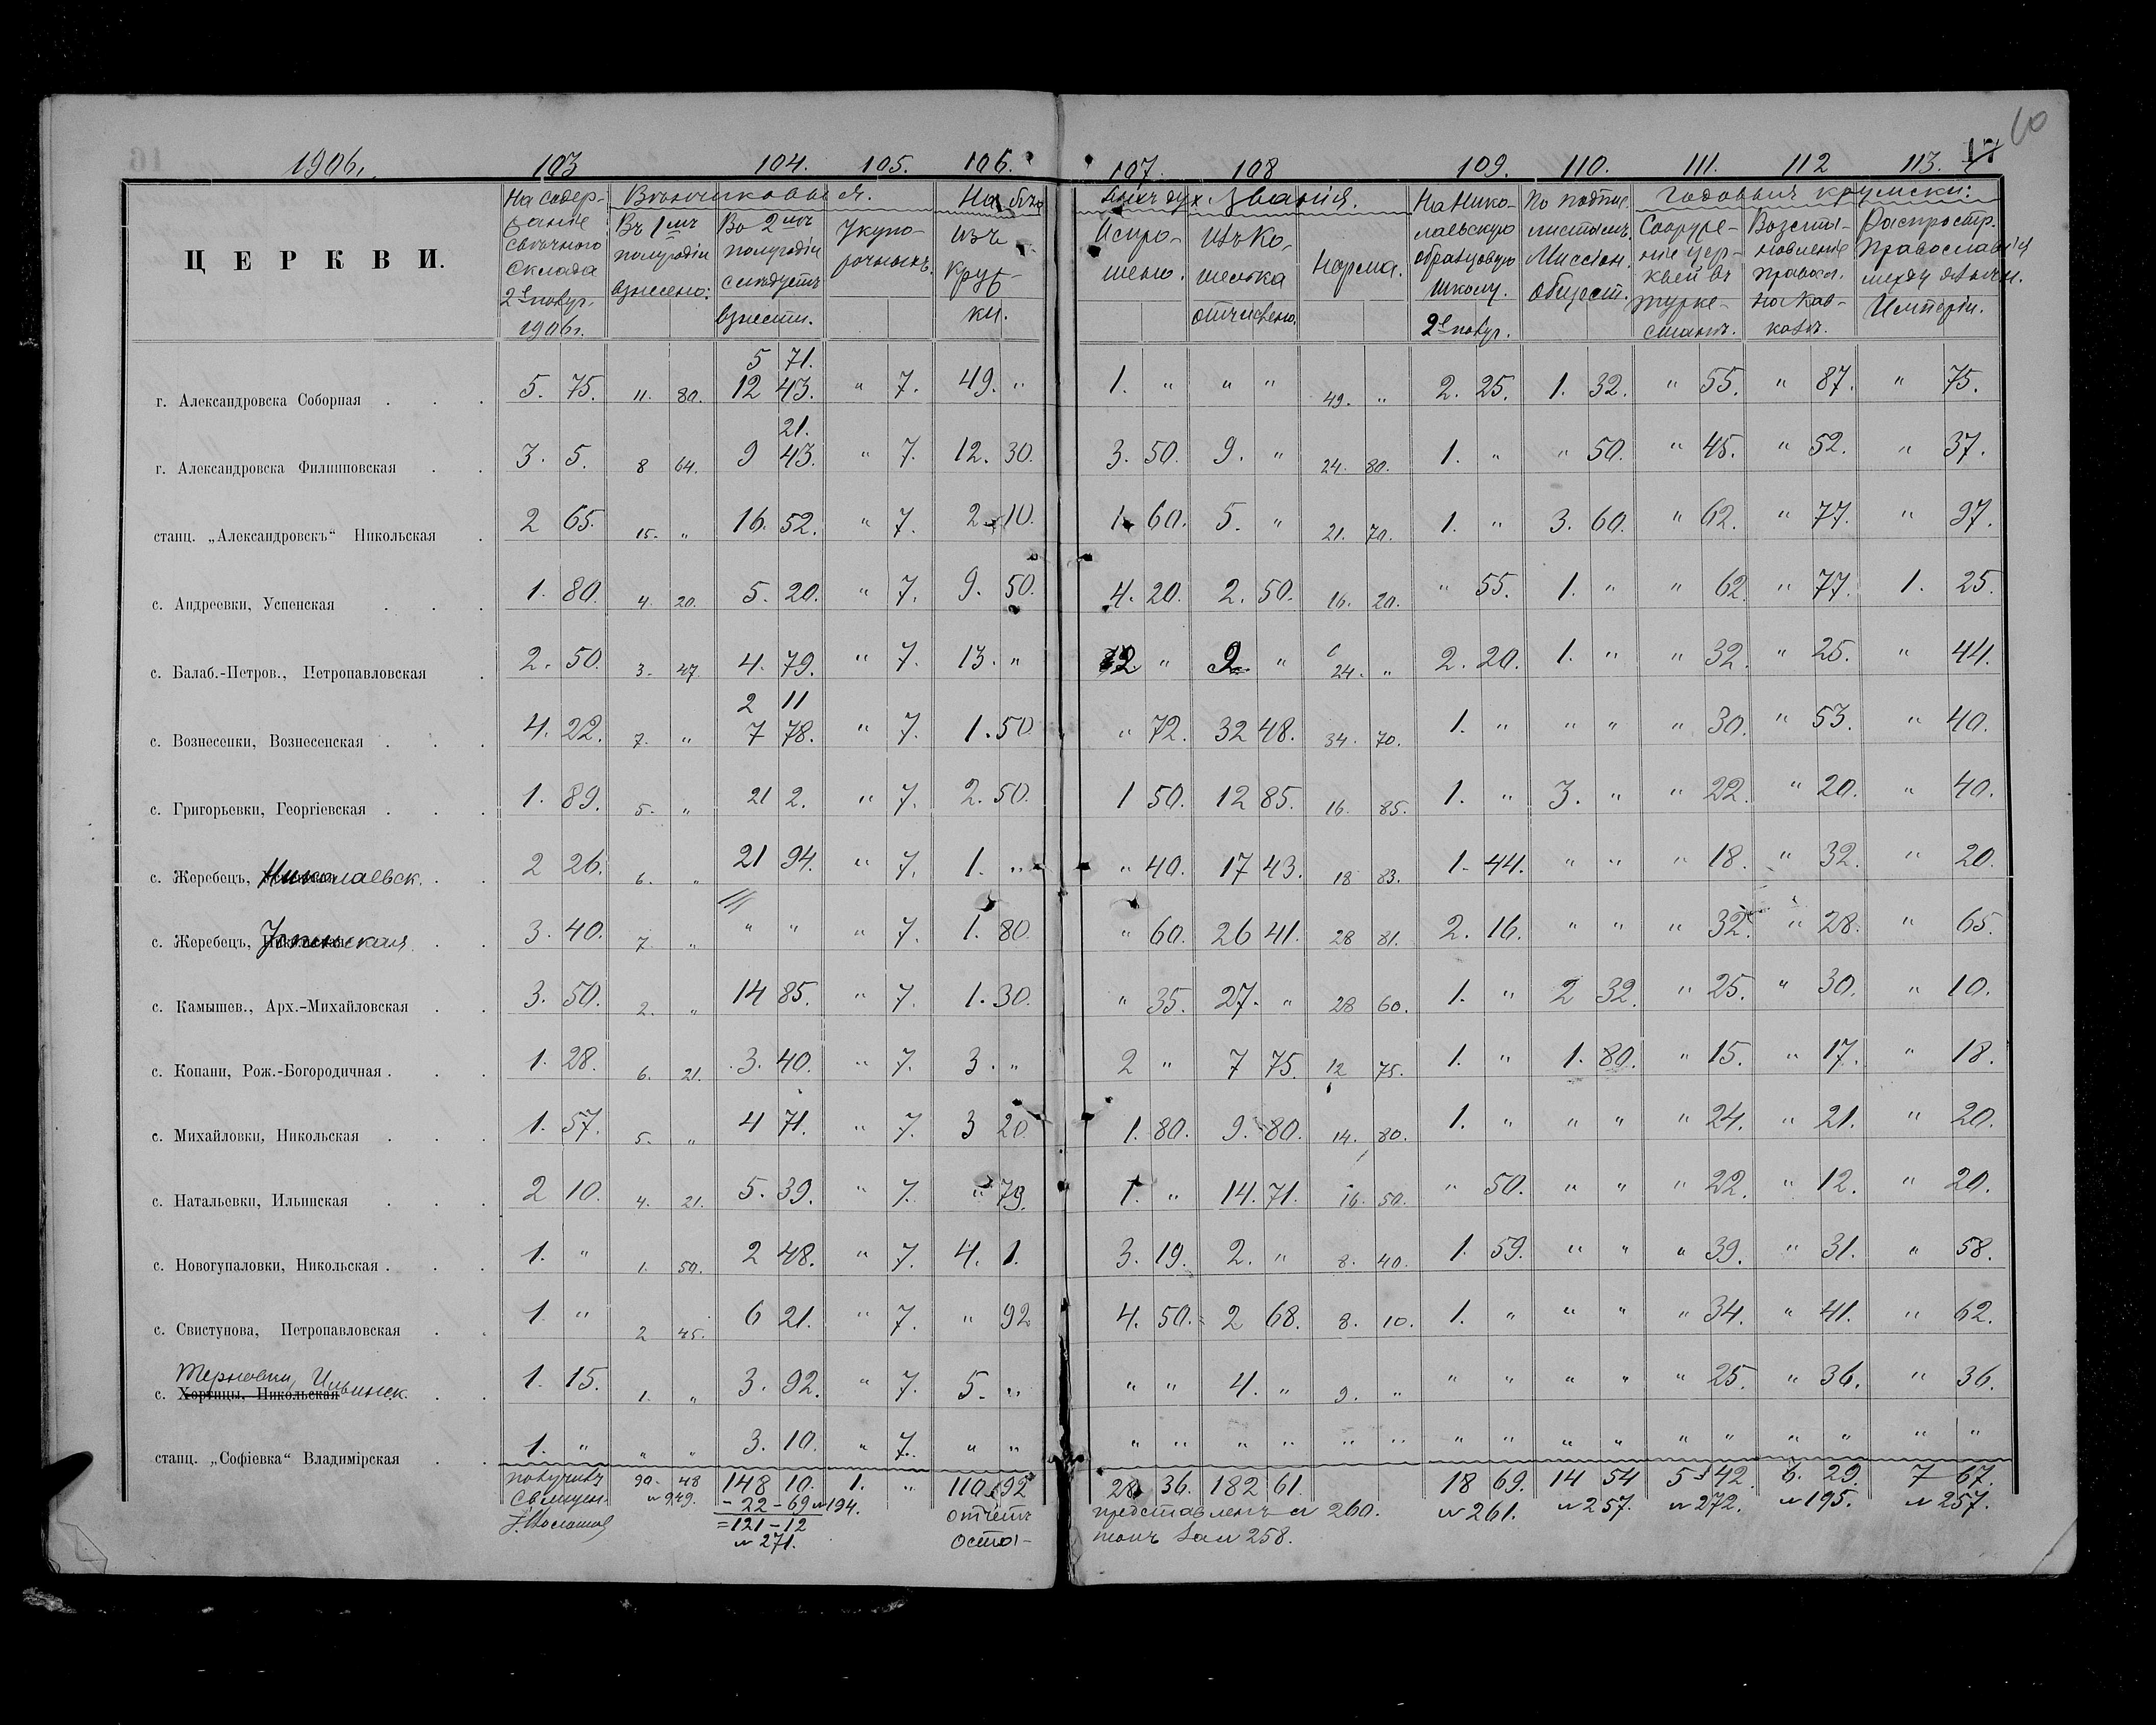 1906 г. 103 104. 105. 106. 107. 108 109. 110. 111. 112 113. 17 60
ЦЕРКВИ.
На содержаніе свѣчного склада 2е полуг. 1906 г.
Вѣнчиковыя.
Въ 1мъ полугодіи взнесено:
Во 2мъ полугодіи слѣдуетъ взнести.
Укупорочныхъ.
На бѣд
изъ кружки.
духъ званія.
Испрошено.
Изъ кошелька отчислено.
Норма.
На Николаевскую образцовую школу. 2е полуг.
По подпис. листамъ. Миссіон. Общест.
Годовыя кружки:
Сооруженіе церквей въ Туркестанѣ.
Возстановленіе правосл. на Кавказѣ.
Распростр. Православія между язычн. Имперіи.
5 71.
г. Александровска Соборная 5. 75. 11. 80. 12 43. " 7. 49. " 1. " " " 49. " 2. 25. 1. 32. " 55. " 87. " 75.
21.
г. Александровска Филипповская 3. 5. 8 64. 9 43. " 7. 12. 30. 3. 50. 9. " 24. 80. 1. " " 50. " 45. " 52. " 37.
станц. „Александровскъ“ Никольская 2 65. 15. " 16. 52. " 7. 2. 10. 1. 60. 5. " 21. 70. 1. " 3. 60. " 62. " 77. " 97.
с. Андреевки, Успенская 1. 80. 4. 20. 5. 20. " 7. 9. 50. 4. 20. 2. 50. 16. 20. " 55. 1. " " 62. " 77. 1. 25.
с. Балаб.-Петров., Петропавловская 2. 50. 3. 47. 4. 79. " 7. 13. " 2 " 9 " 24. " 2. 20. 1. " " 32. " 25. " 44.
2 11
с. Вознесенки, Вознесенская 4. 22. 7. " 7 78. " 7. 1. 50. " 72. 32 48. 34. 70. 1. " " " " 30. " 53. " 40.
с. Григорьевки, Георгіевская 1. 89. 5. " 21 2. " 7. 2. 50. 1 50. 12 85. 16. 85. 1. " 3. " " 22. " 20. " 40.
с. Жеребецъ, Николаевск. 2 26. 6. " 21 94. " 7. 1. " " 40. 17 43. 18 83. 1. 44. " " " 18. " 32. " 20.
с. Жеребецъ, Успенская 3. 40. 7. " " " " 7. 1. 80. " 60. 26 41. 28 81. 2. 16. " " " 32. " 28. " 65.
с. Камышев., Арх.-Михайловская 3. 50. 2. " 14 85. " 7. 1. 30. " 35. 27. " 28 60. 1. " 2 32. " 25. " 30. " 10.
с. Копани, Рож.-Богородичная 1. 28. 6. 21. 3. 40. " 7. 3. " 2 " 7 75. 12 75. 1. " 1. 80. " 15. " 17. " 18.
с. Михайловки, Никольская 1. 57. 5. " 4 71. " 7. 3 20. 1. 80. 9. 80. 14. 80. 1. " " " " 24. " 21. " 20.
с. Натальевки, Ильинская 2 10. 4. 21. 5. 39. " 7. " 79. 1. " 14. 71. 16. 50. " 50. " " " 22. " 12. " 20.
с. Новогупаловки, Никольская 1. " 1. 50. 2 48. " 7. 4. 1. 3. 19. 2. " 8. 40. 1. 59. " " " 39. " 31. " 58.
с. Свистунова, Петропавловская 1. " 2 45. 6 21. " 7. " 92 4. 50. 2 68. 8. 10. 1. " " " " 34. " 41. " 62.
Терновки, Ильинск.
с. Хортицы, Никольская 1. 15. 1. " 3. 92. " 7. 5. " " " 4. " 9. " " " " " " 25. " 36. " 36.
станц. „Софіевка“ Владимірская 1. " " " 3. 10. " 7. " " " " " " " " " " " " " " " " " "
получилъ 90. 48 148 10. 1. " 110. 92 28. 36. 182 61. 18 69. 14 54 5 42. 6. 29. 7 67.
Священ. № 949. - 22 - 69 № 194. отчетъ представленъ № 260. № 261. № 257. № 272. № 195. № 257.
= 121 - 12
№ 271. за № 258.